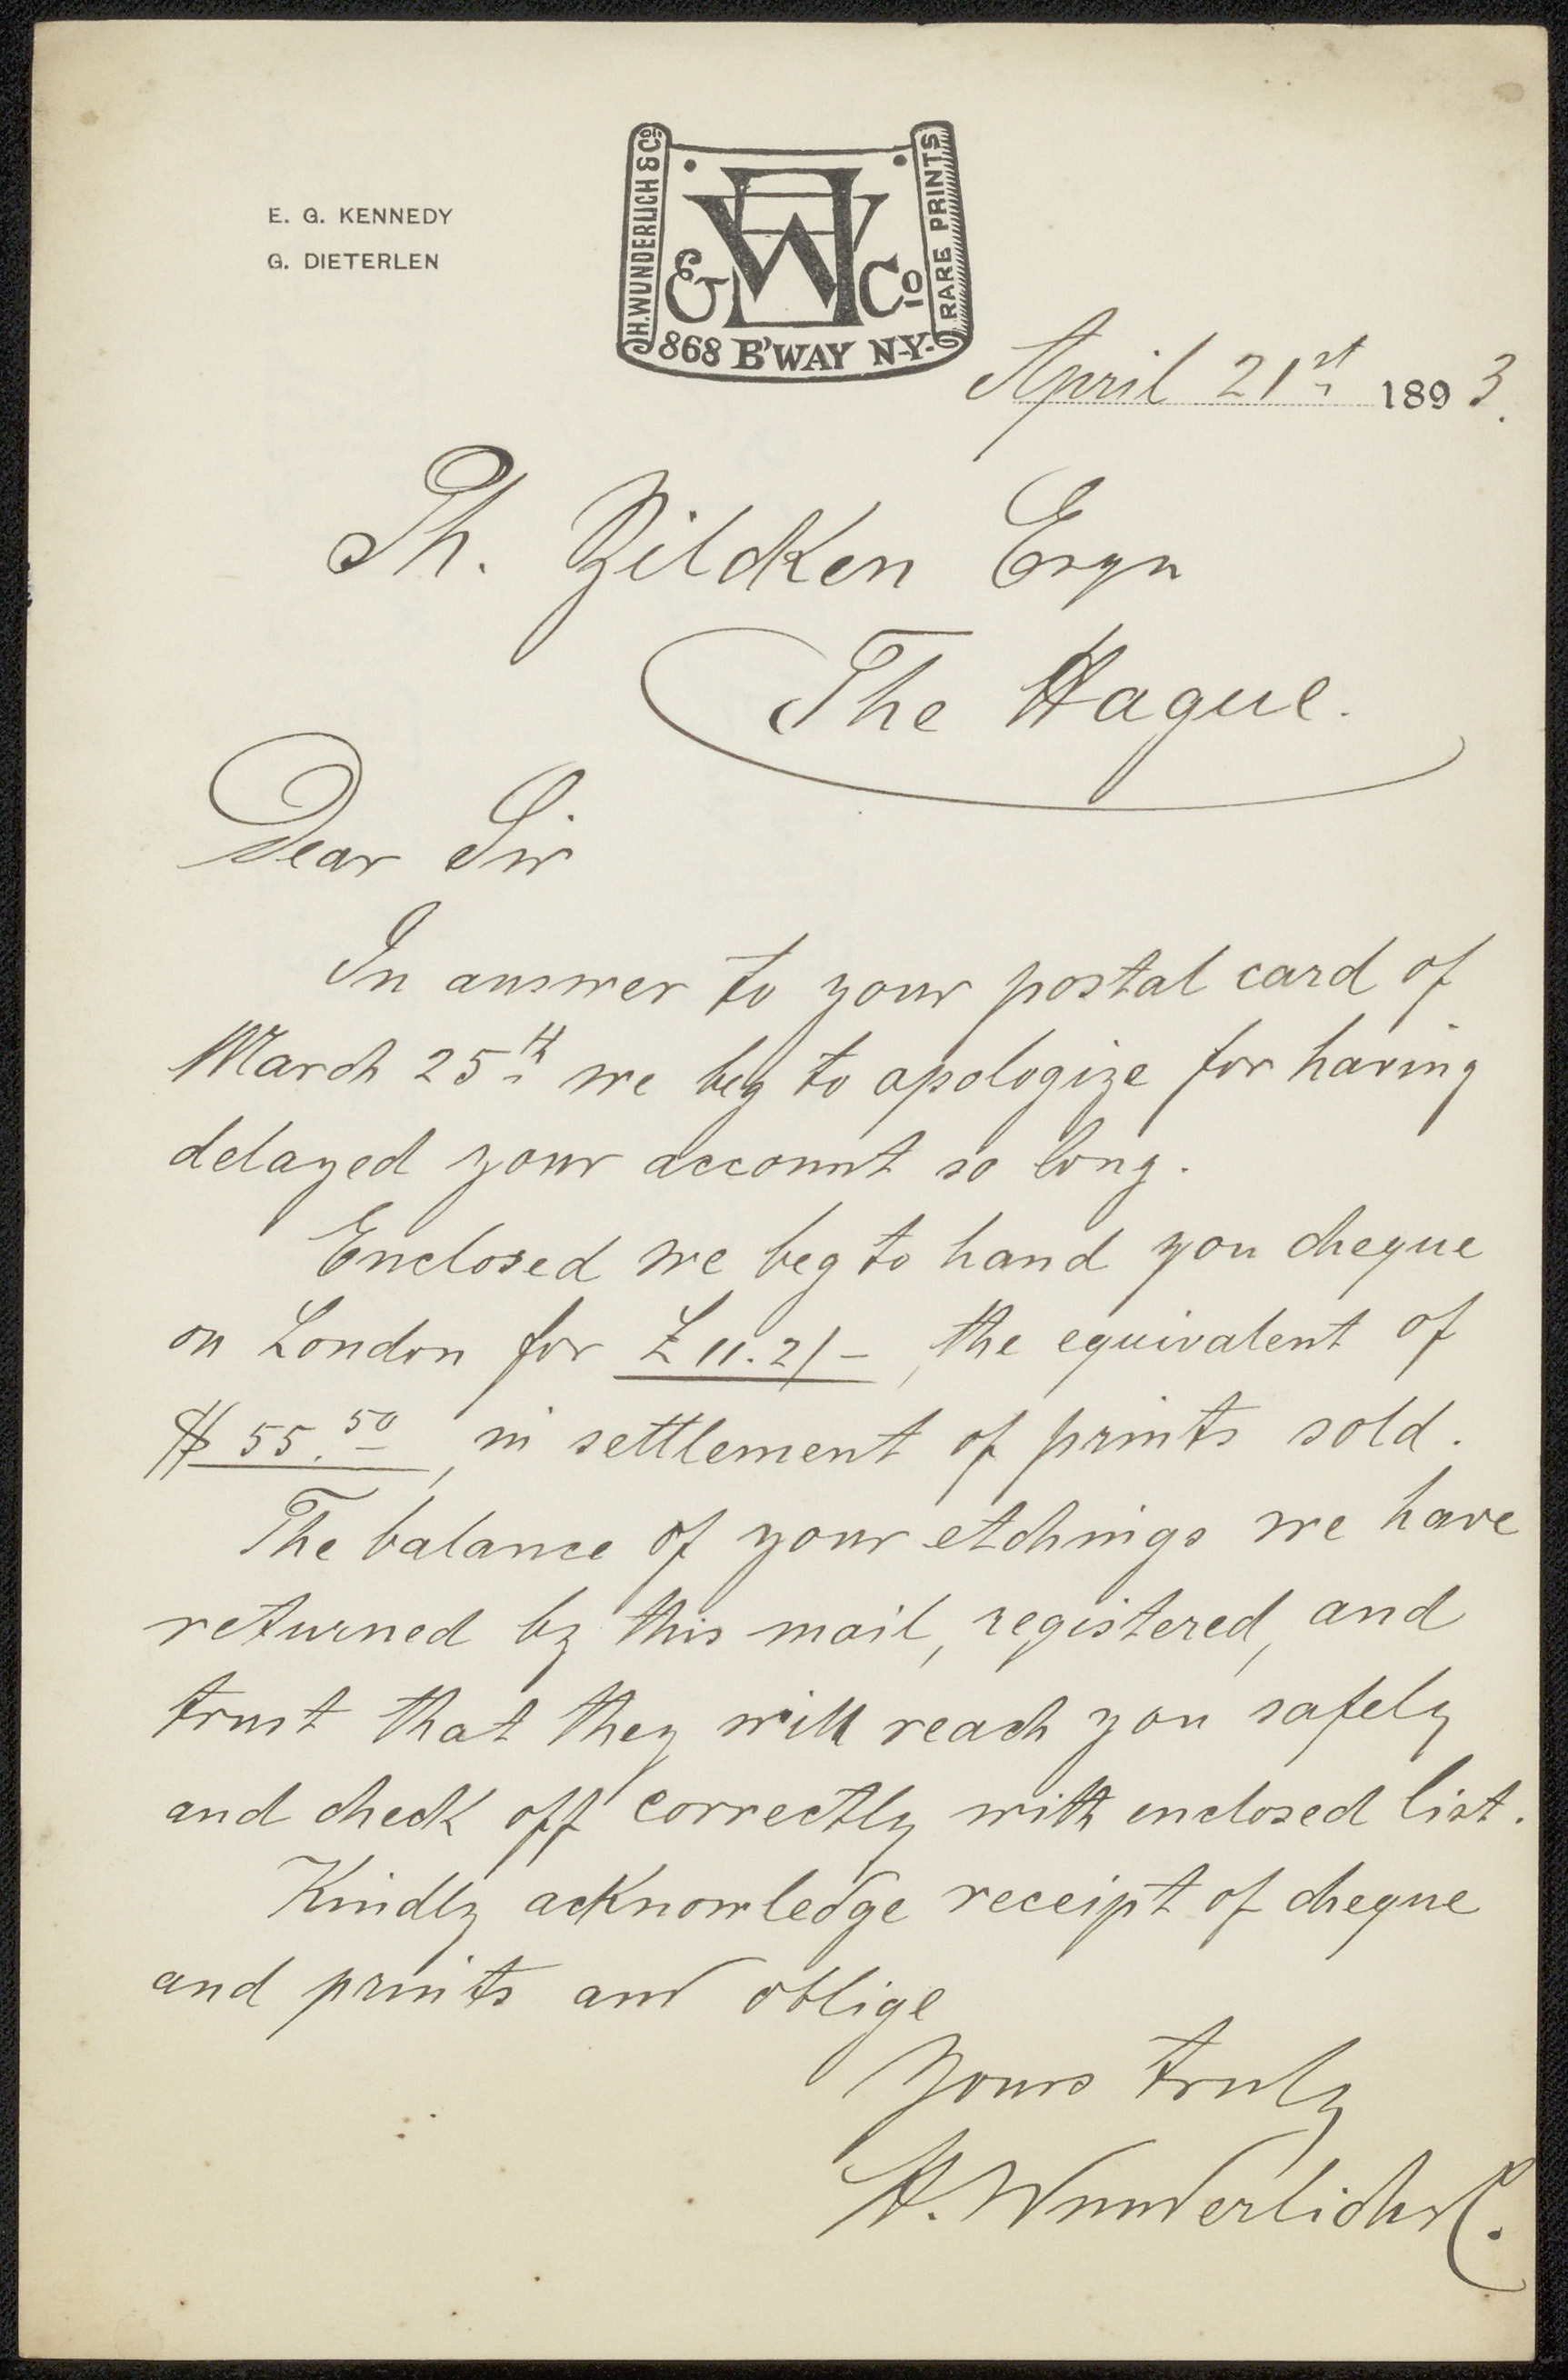 E. G. KENNEDY
G. DIETERLEN
H. WUNDERLICH & Co.
RARE PRINTS
HW & Co
868 B'WAY N-Y-
April 21st 1893.
Th. Zildken Esqu
The Hague.
Dear Sir
In answer to your postal card of
March 25th we beg to apologize for having
delayed your account so long.
Enclosed we beg to hand you cheque
on London for £ 11. 2/-, the equivalent of
$ 55.50, in settlement of prints sold.
The balance of your etchings we have
returned by this mail, registered, and
trust that they will reach you safely
and check off correctly with enclosed list.
Kindly acknowledge receipt of cheque
and prints and oblige
Yours truly
H. Wunderlich & C.